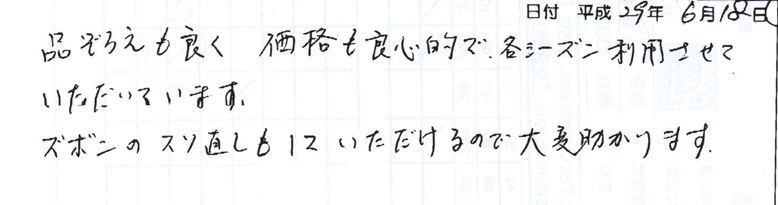 日付 平成29年6月18日
品ぞろえも良く 価格も良心的で、各シーズン利用させて
いただいています。
ズボンのスソ直しもしていただけるので大変助かります。